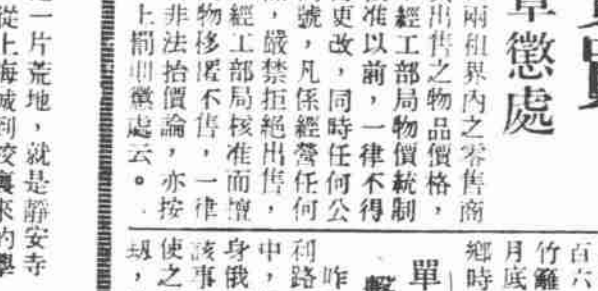 章懲處
兩租界內之零售商
出售之物品價格，
經工部局物價統制
准以前，一律不得
更改，同時任何公
號，凡係經營任何
，嚴禁拒絕出售，
經工部局核准而擅
物移匿不售，一律
非法抬價論，亦按
上罰則懲處云。
一片荒地，就是靜安寺
從上海城到
來的
百六
竹籬
月底
鄉時
單
擊
昨
利路
中，
身俄
該事
使之
，